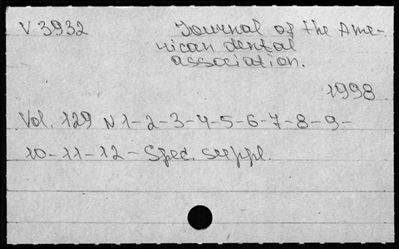 V 3932 Journal of the Ame-
rican dental
association.
1998
Vol. 129 N 1-2-3-4-5-6-7-8-9-
10-11-12- Spec. suppl.